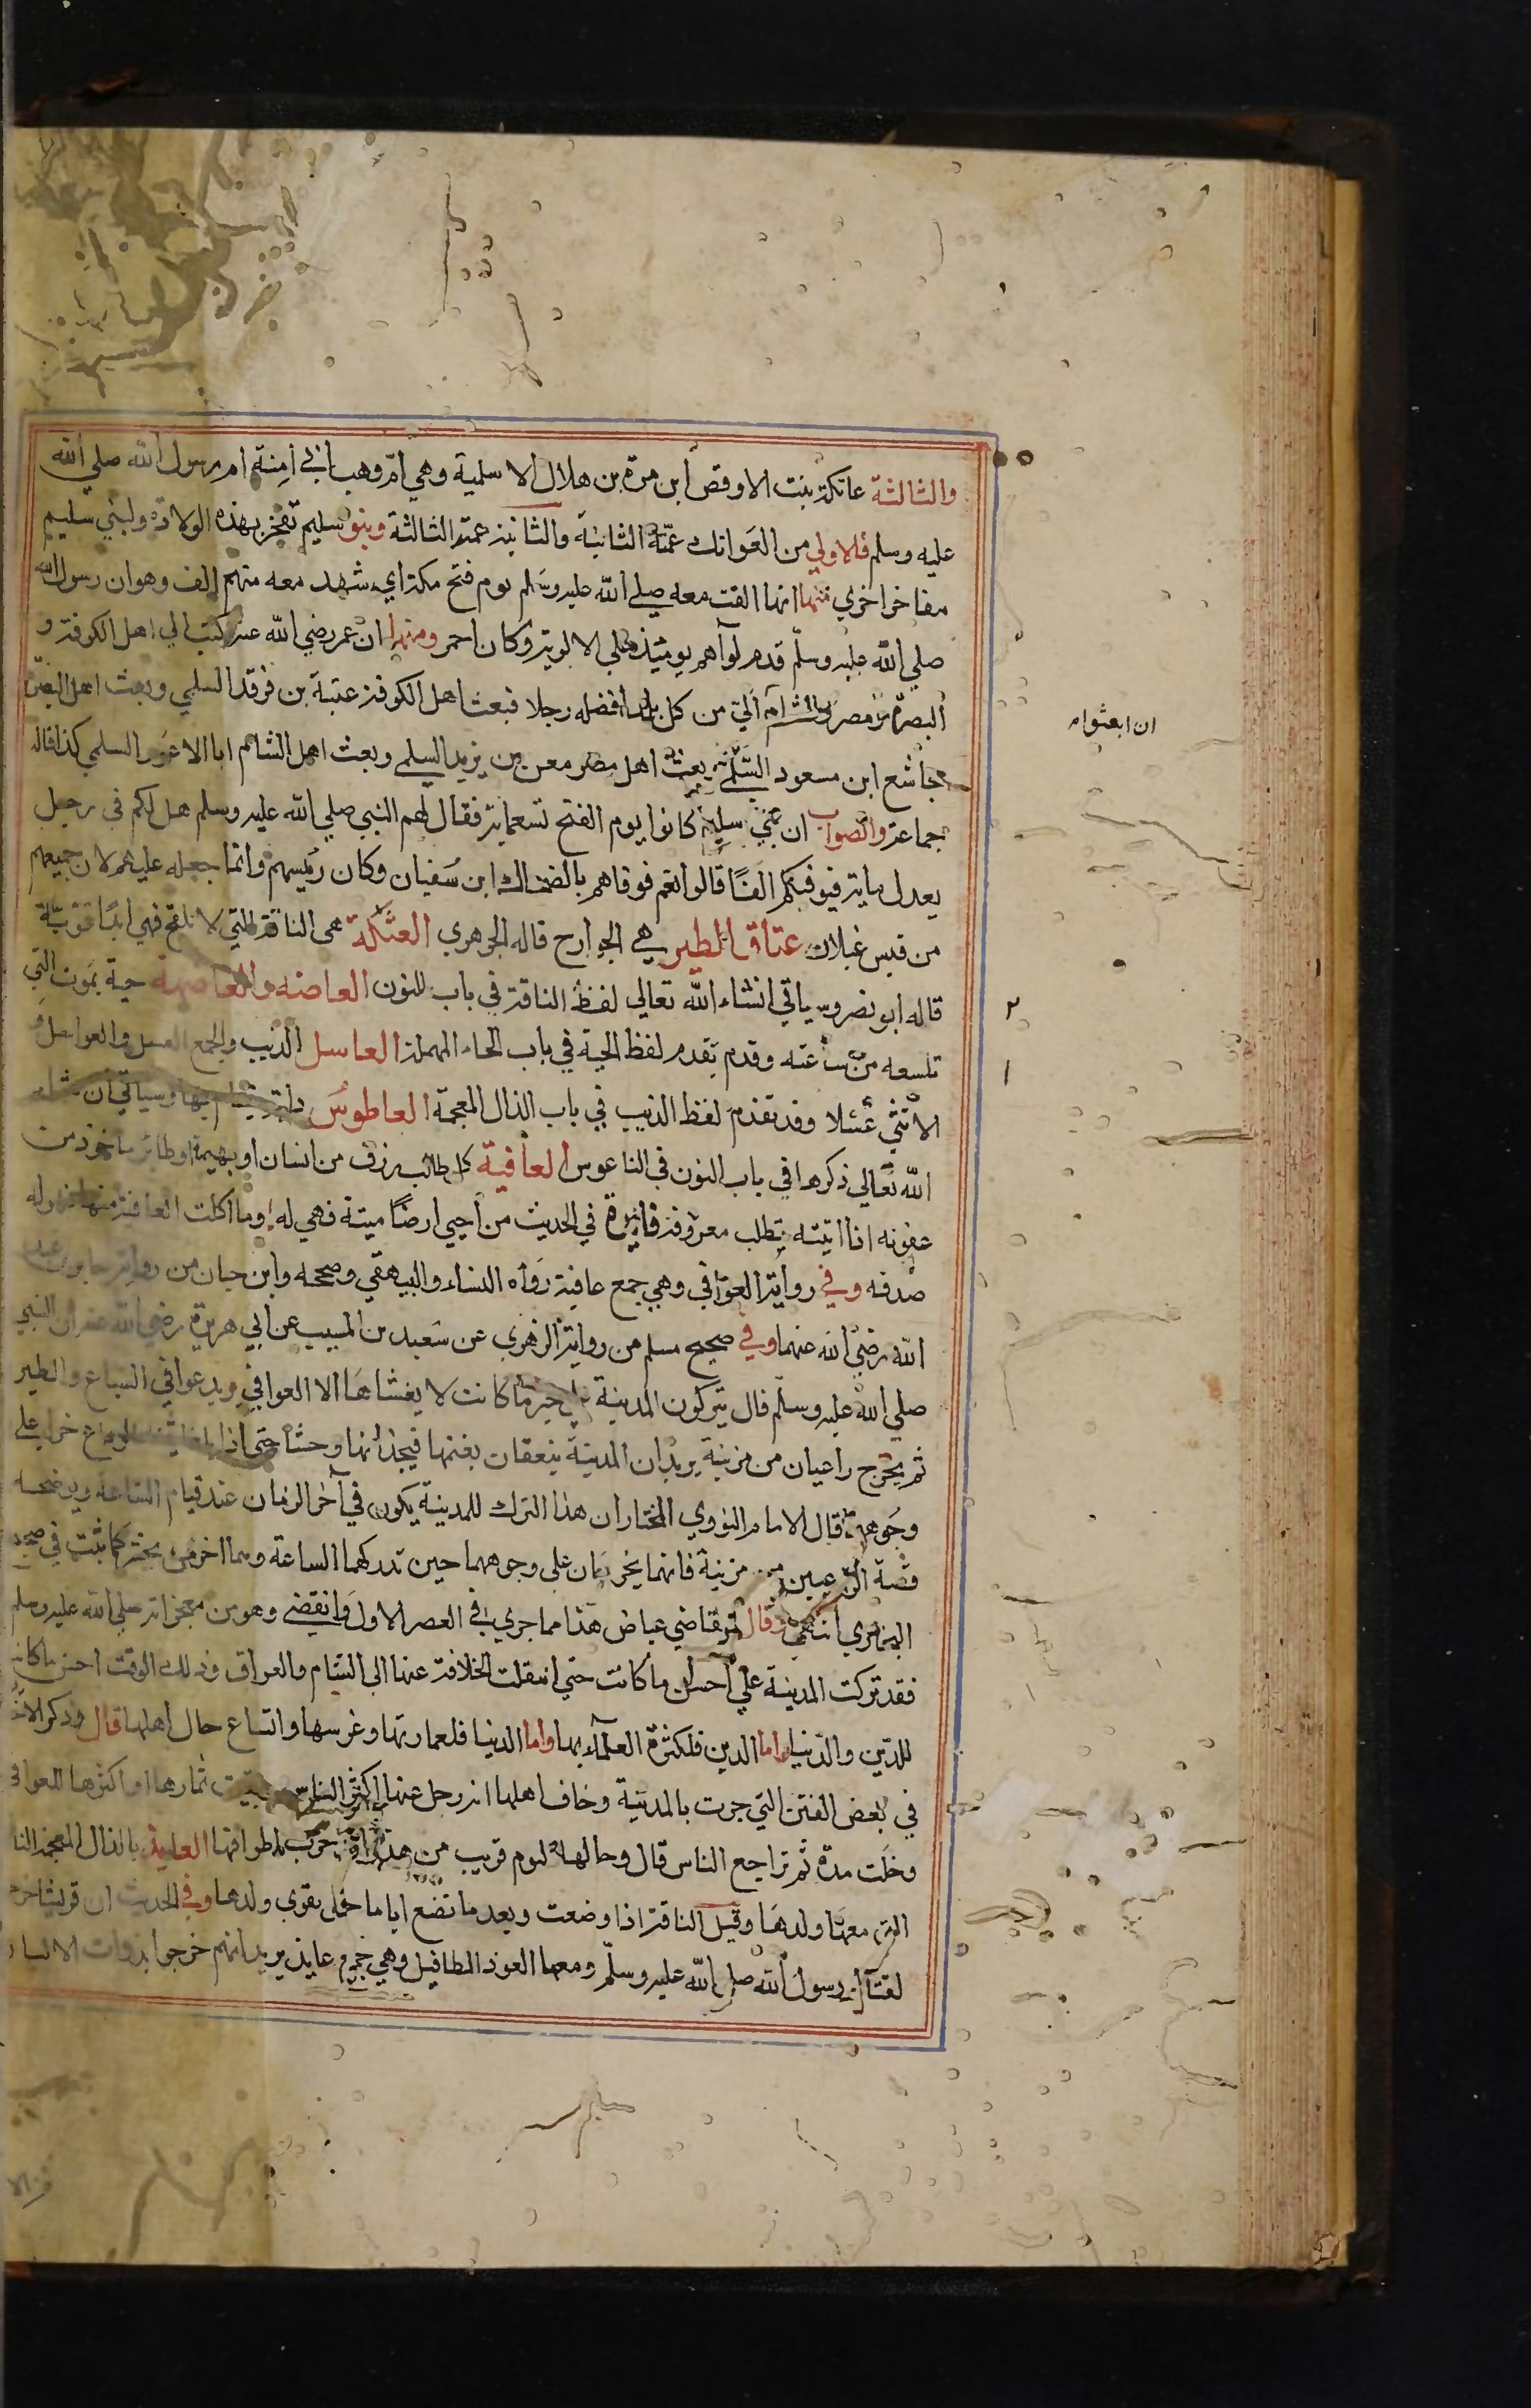 والثالثة عاتكة بنت الاوقص ابن مرة بن هلال الاسلمية وهي ام وهب ابي امنة ام رسول الله صلي الله
عليه وسلم فالاولي من العواتك عمّة الثانية والثانية عمة الثالثة وبنو سليم تفخر بهذه الولادة ولبني سليم
مفاخر اخري منها انها الفت معه صلي الله عليه وسلم يوم فتح مكة اي شهد معه منهم الف وهو ان رسول الله
صلي الله عليه وسلم قدم لواهم يومئذ علي الالوية وكان احمر ومنها ان عمر رضي الله عنه كتب الي اهل الكوفة و
البصرة و مصر والشام اليّ من كل بلد افضله رجلا فبعث اهل الكوفة عتبة بن فرقد السلمي وبعث اهل البصرة
ان ابعثوا
مجاشع ابن مسعود السّلمي بعث اهل مصر معن بن يزيد السلمي وبعث اهل الشام ابا الاعور السلمي كذا قاله
جماعة والصواب ان بني سليم كانوا يوم الفتح تسعماية فقال لهم النبي صلي الله عليه وسلم هل لكم في رجل
يعدل ماية فيوفيكم الفًا قالوا نعم فوفاهم بالضحاك ابن سفيان وكان رئيسهم وانما جعله عليهم لان جميعهم
من قيس غيلان عتاق الطير هي الجوارح قاله الجوهري العثكلة هى الناقة التي لا تلقح فهي ابدًا قوية
٢
قاله ابو نصر وسياتي انشاء الله تعالي لفظ الناقة في باب النون العاضه والعاضهة حية يموت التي
١
تلسعه من ساعته وقدم تقدم لفظ الحية في باب الحاء المهملة العاسل الذيب والجمع العسل والعواسل و
الانثي عسلا وقد تقدم لفظ الذيب في باب الذال المعجمة العاطوس دابة يتشام بها وسياتي ان شاء
الله تعالي ذكرها في باب النون في الناعوس العافية كل طالب رزق من انسان او بهيمة او طائر ماخوذ من
عفوته اذا اتيته تطلب معروفه فائدة في الحديث من احيي ارضًا ميتة فهي له وما اكلت العافية منها فهو له
صدقه وفي رواية العوافي وهي جمع عافية رواه النساء والبيهقي وصححه وابن حبان من رواية جابر بن عبد
الله رضي الله عنهما وفي صحيح مسلم من رواية الزهري عن سعيد بن المسيب عن ابي هريرة رضي الله عنه ان النبي
صلي الله عليه وسلم قال تتركون المدينة علي خير ما كانت لا يغشاها الا العوافي يريد عوافي السباع والطير
ثم يخرج راعيان من مزينة يريدان المدينة ينعقان بغنمها فيجدانها وحشا حتي اذا بلغا ثنية الوداع خرا علي
وجوههما قال الامام النووي المختار ان هذا الترك للمدينة يكون في آخر الزمان عند قيام الساعة ويوضحه
قصة الراعيين من مزينة فانهما يخران علي وجوههما حين تدركهما الساعة وهما اخر من يحشر كما ثبت في صحيح
البخاري انتهي وقال القاضي عياض هذا مما جري في العصر الاول وانقضي وهو من معجزاته صلي الله عليه وسلم
فقد تركت المدينة علي احسن ما كانت حتي انتقلت الخلافة عنها الى الشام والعراق وذلك الوقت احسن ما كانت
للدين والدنيا اما الدين فلكثرة العلماء بها واما الدنيا فلعمارتها وغرسها واتساع حال اهلها قال وذكر الاخ
في بعض الفتن التي جرت بالمدينة وخاف اهلها انه رحل عنها اكثر الناس وبقيت ثمارها او اكثرها للعوافي
وخلت مدة ثم تراجع الناس قال وحالها اليوم قريب من هذا وقد خرب اطرافها العايذ بالذال المعجمة النا
التي معها ولدها وقيل الناقة اذا وضعت وبعد ما تضع اياما حتى يقوي ولدها وفي الحديث ان قريشا خرج
لقتال رسول الله صلي الله عليه وسلم ومعها العوذ المطافيل وهي جمع عايذ يريد انهم خرجوا بذوات الالبان